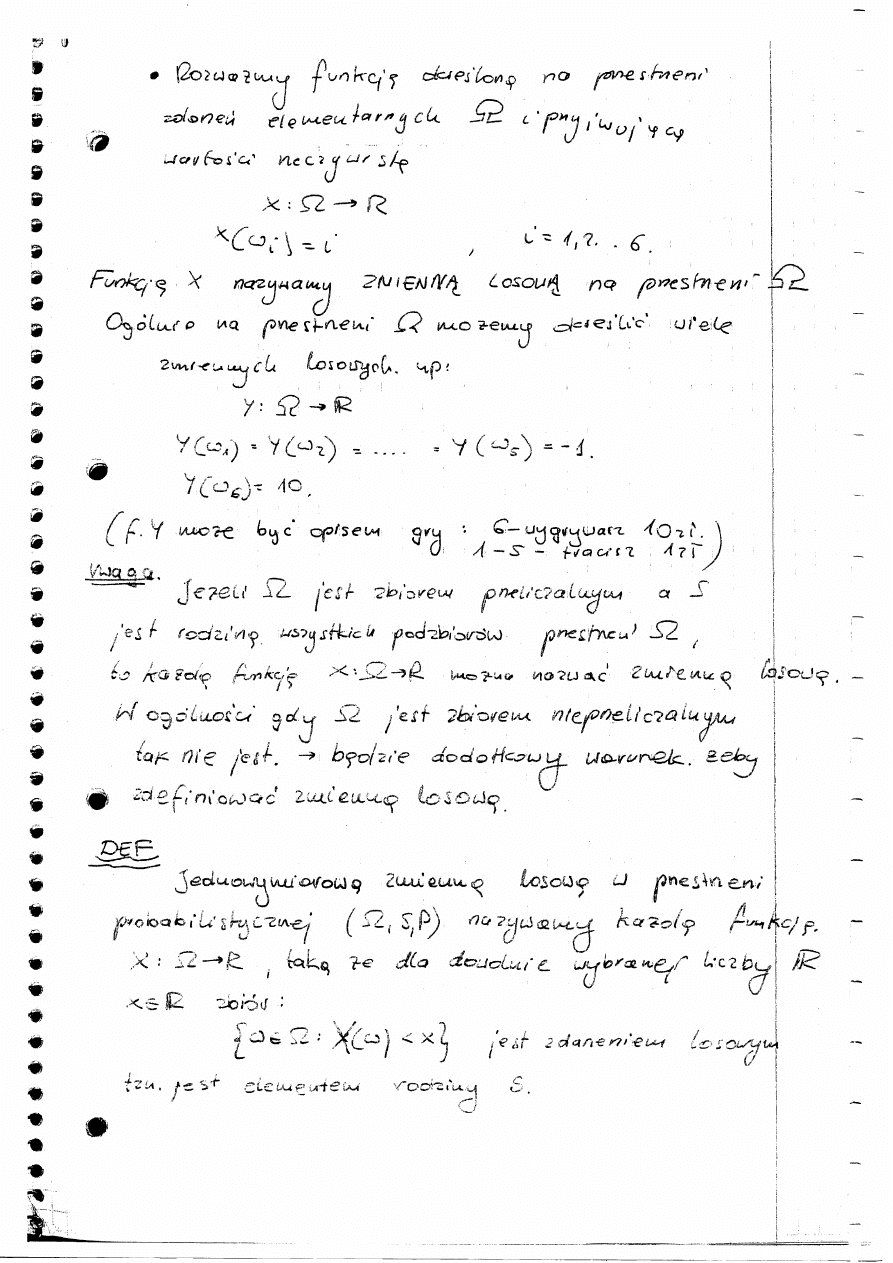 • Rozważmy funkcję określoną na przestrzeni
zdarzeń elementarnych Ω i przyjmującą
wartości rzeczywiste
X : Ω → R
X(ωi) = i , i = 1,2. . 6.
Funkcję X nazywamy ZMIENNĄ LOSOWĄ na przestrzeni Ω
Ogólnie na przestrzeni Ω możemy określić wiele
zmiennych losowych. np:
Y : Ω → R
Y(ω1) = Y(ω2) = .... = Y(ω5) = -1.
Y(ω6) = 10.
(f. Y może być opisem gry : 6 - wygrywasz 10zł.
1-5 - tracisz 1zł)
Uwaga.
Jeżeli Ω jest zbiorem przeliczalnym a S
jest rodziną wszystkich podzbiorów przestrzeni Ω,
to każdą funkcję X: Ω→R można nazwać zmienną losową.
W ogólności gdy Ω jest zbiorem nieprzeliczalnym
tak nie jest. → będzie dodatkowy warunek. żeby
zdefiniować zmienną losową.
DEF
Jednowymiarową zmienną losową w przestrzeni
probabilistycznej (Ω, S, P) nazywamy każdą funkcję.
X : Ω→R , taką że dla dowolnie wybranej liczby R
x∈R zbiór :
{ω∈Ω : X(ω) < x} jest zdarzeniem losowym
tzn. jest elementem rodziny S.